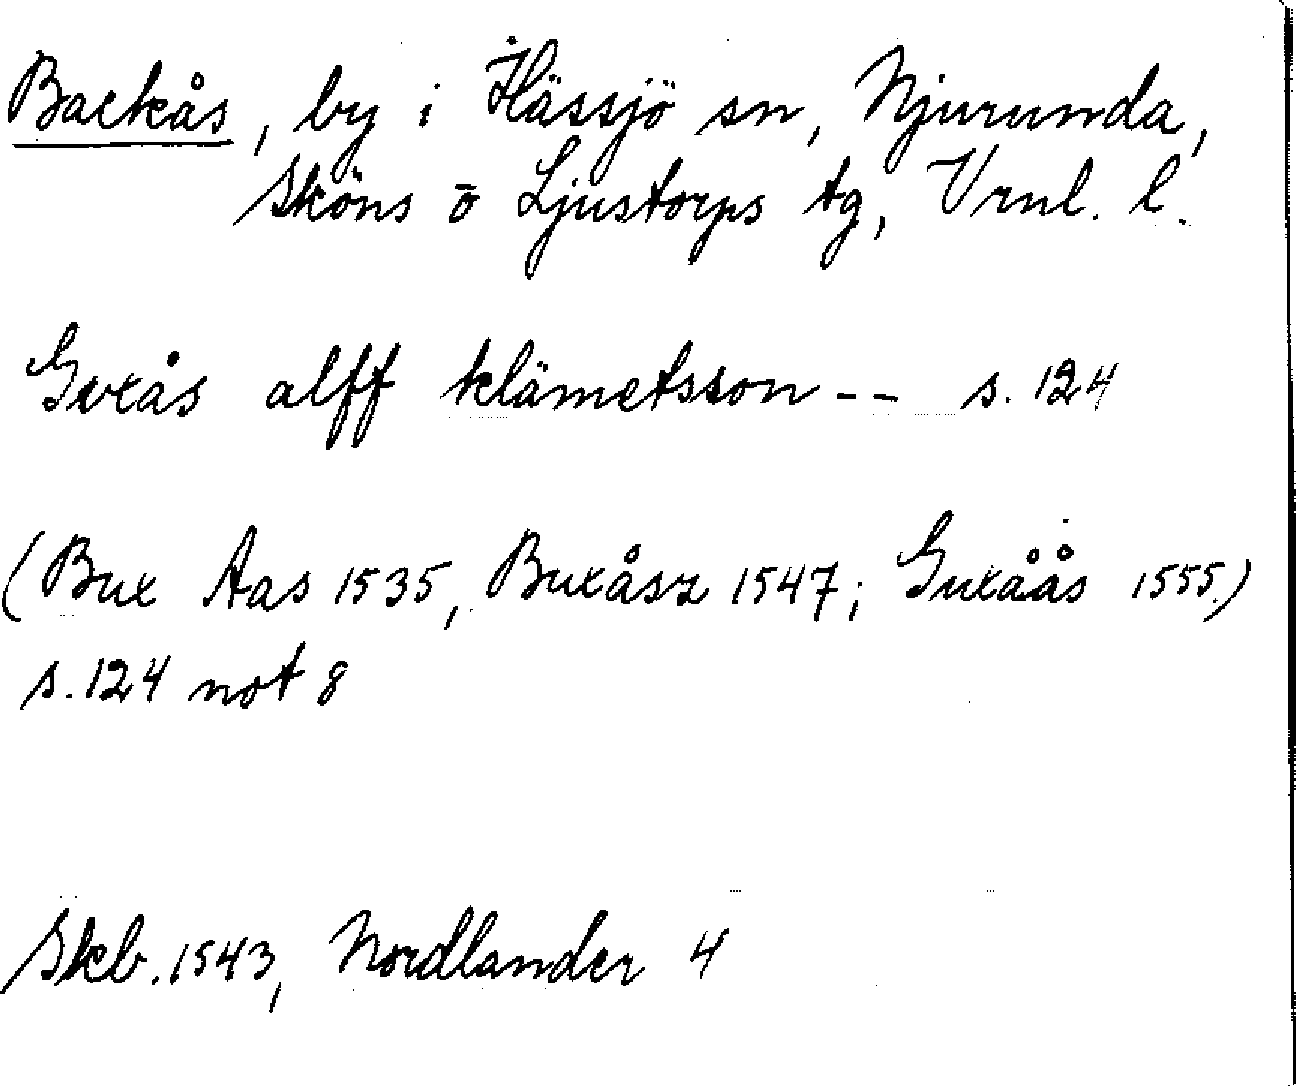 Backås, by i Hässjö sn, Njurunda,
Sköns o Ljustorps tg, Vrnl. l.
Gvxås alff klämetsson -- s. 124
(Bux Aas 1535, Buxåsz 1547; Guxåås 1555.)
s. 124 not 8
Skb. 1543, Nordlander 4